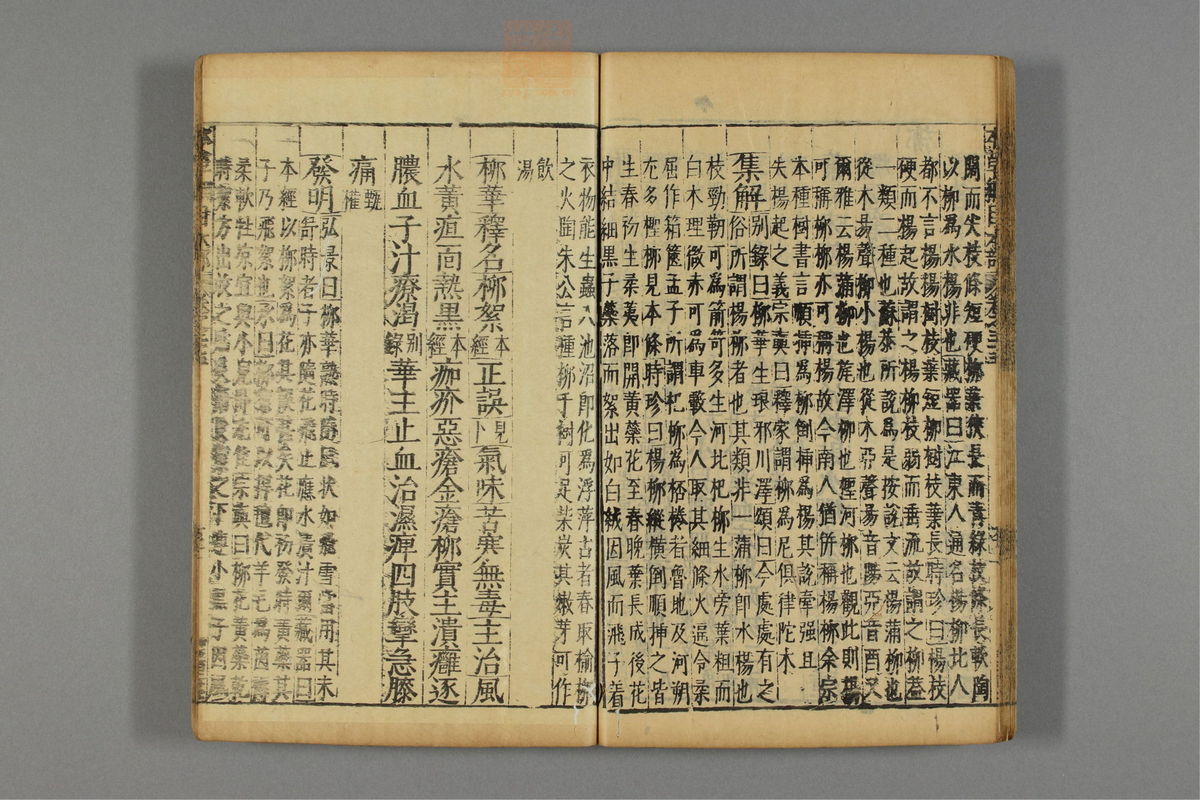 闊而尖枝條短硬柳葉狹長而青綠枝條長軟陶
以柳爲水楊非也藏器曰江東人通名楊柳北人
都不言楊楊樹枝葉短柳樹枝葉長時珍曰楊枝
硬而揚起故謂之楊柳枝弱而垂流故謂之柳蓋
一類二種也蘇恭所說爲是按說文云楊蒲柳也
從木昜聲柳小楊也從木丣聲昜音陽丣音酉又
爾雅云楊蒲柳也旄澤柳也檉河柳也觀此則楊
可稱柳柳亦可稱楊故今南人猶併稱楊柳俞宗
本種樹書言順揷爲柳倒揷爲楊其說牽强且
失楊起之義宗奭曰釋家謂柳爲尼俱律陀木
集解別錄曰柳華生琅邪川澤頌曰今處處有之
俗所謂楊柳者也其類非一蒲柳卽水楊也
枝勁韌可爲箭笴多生河北杞柳生水旁葉粗而
白木理微赤可爲車轂今人取其細條火逼令柔
屈作箱篋孟子所謂杞柳爲桮棬者魯地及河朔
尤多檉柳見本條時珍曰楊柳縱橫倒順揷之皆
生春初生柔荑卽開黃蘂花至春晚葉長成後花
中結細黑子蘂落而絮出如白絨因風而飛子着
衣物能生蟲入池沼卽化爲浮萍古者春取榆柳
之火陶朱公言種柳千樹可足柴炭其嫩芽可作
飲
湯
柳華釋名柳絮本經正誤見下氣味苦寒無毒主治風
水黃疸面熱黑本經痂疥惡瘡金瘡柳實主潰癰逐
膿血子汁療渴別錄華主止血治濕痺四肢攣急膝
痛甄權
發明弘景曰柳華熟時隨風狀如飛雪當用其未
舒時者子亦隨花飛止應水漬汁爾藏器曰
本經以柳絮爲花其誤甚矣花卽初發時黃蘂其
子乃飛絮也承曰柳絮可以捍氈代羊毛爲茵褥
柔軟性涼宜與小兒臥尤佳宗奭曰柳花黃蘂乾